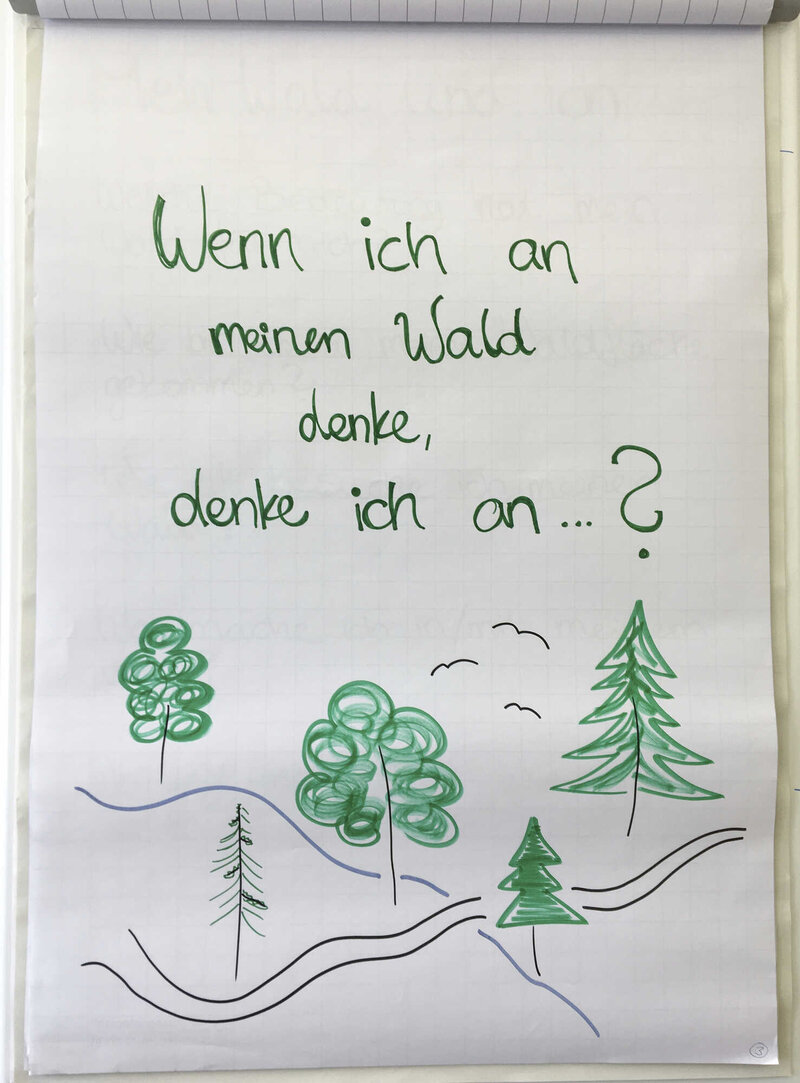 Wenn ich an
meinen Wald
denke,
denke ich an ... ?
3